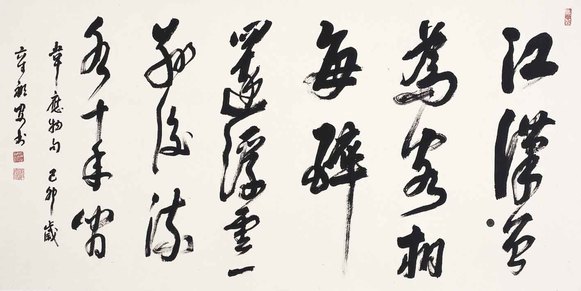 江漢曾
為客相
每醉
還浮雲一
別後流
水十年間
韋應物句 己卯歲
章祖安书